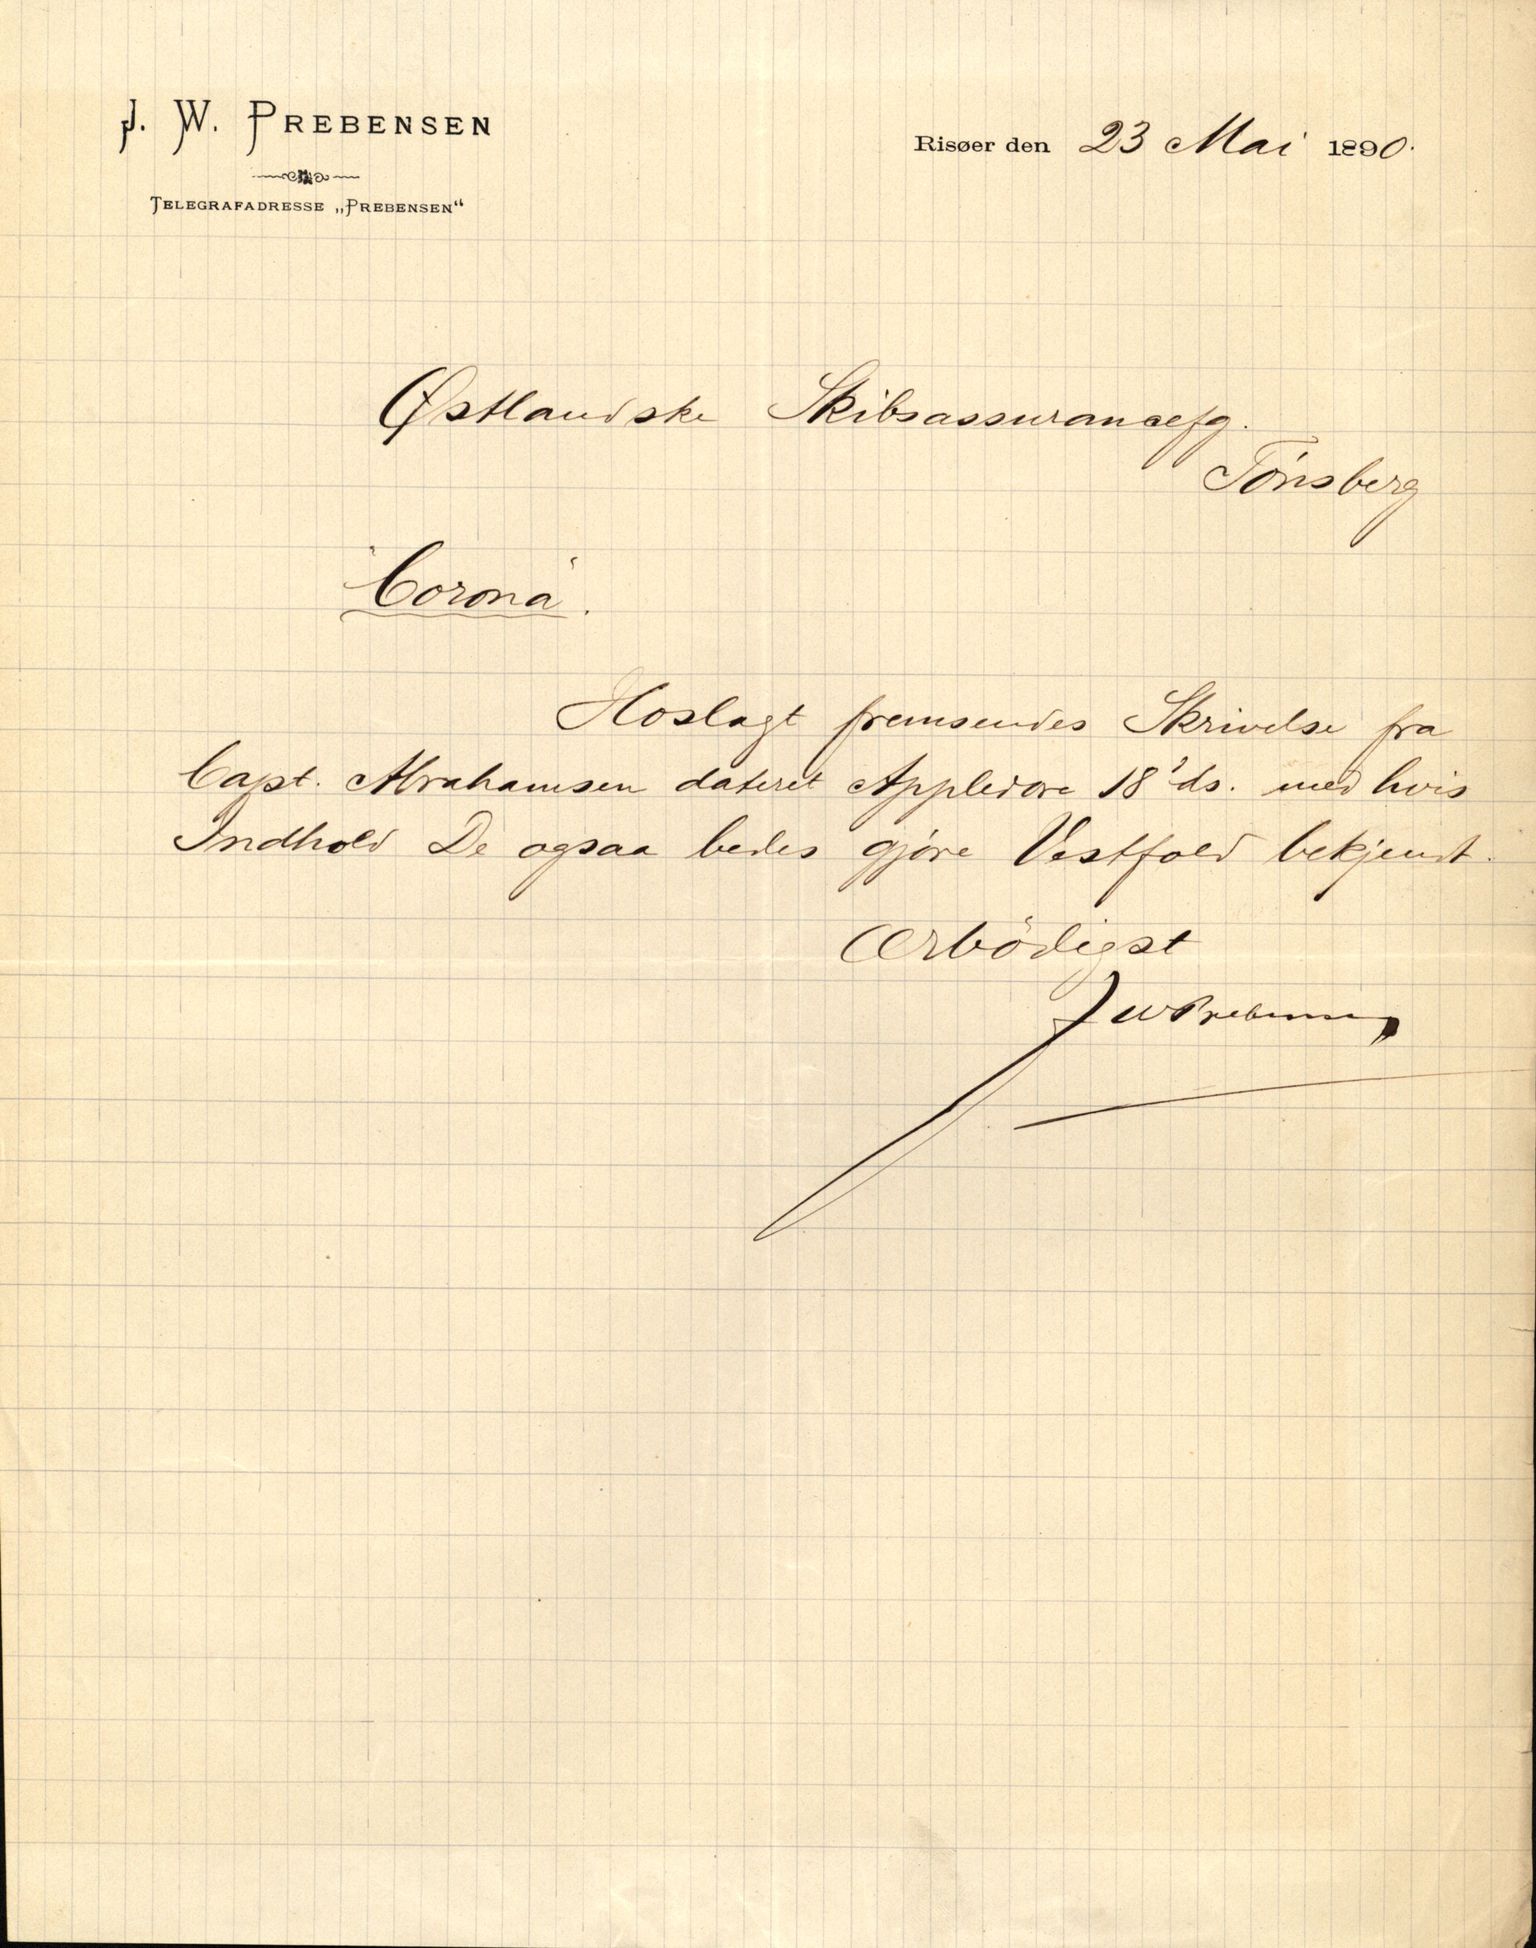 J. W. PREBENSEN
TELEGRAFADRESSE „PREBENSEN“
Risøer den 23 Mai 1890.
Østlandske Skibsassurancefg.
Tönsberg
"Corona".
Hoslagt fremsendes Skrivelse fra
Capt. Abrahamsen dateret Appledore 18' ds. med hvis
Indhold De ogsaa bedes gjøre Vestfold bekjendt.
Ærbödigst
J W Prebensen